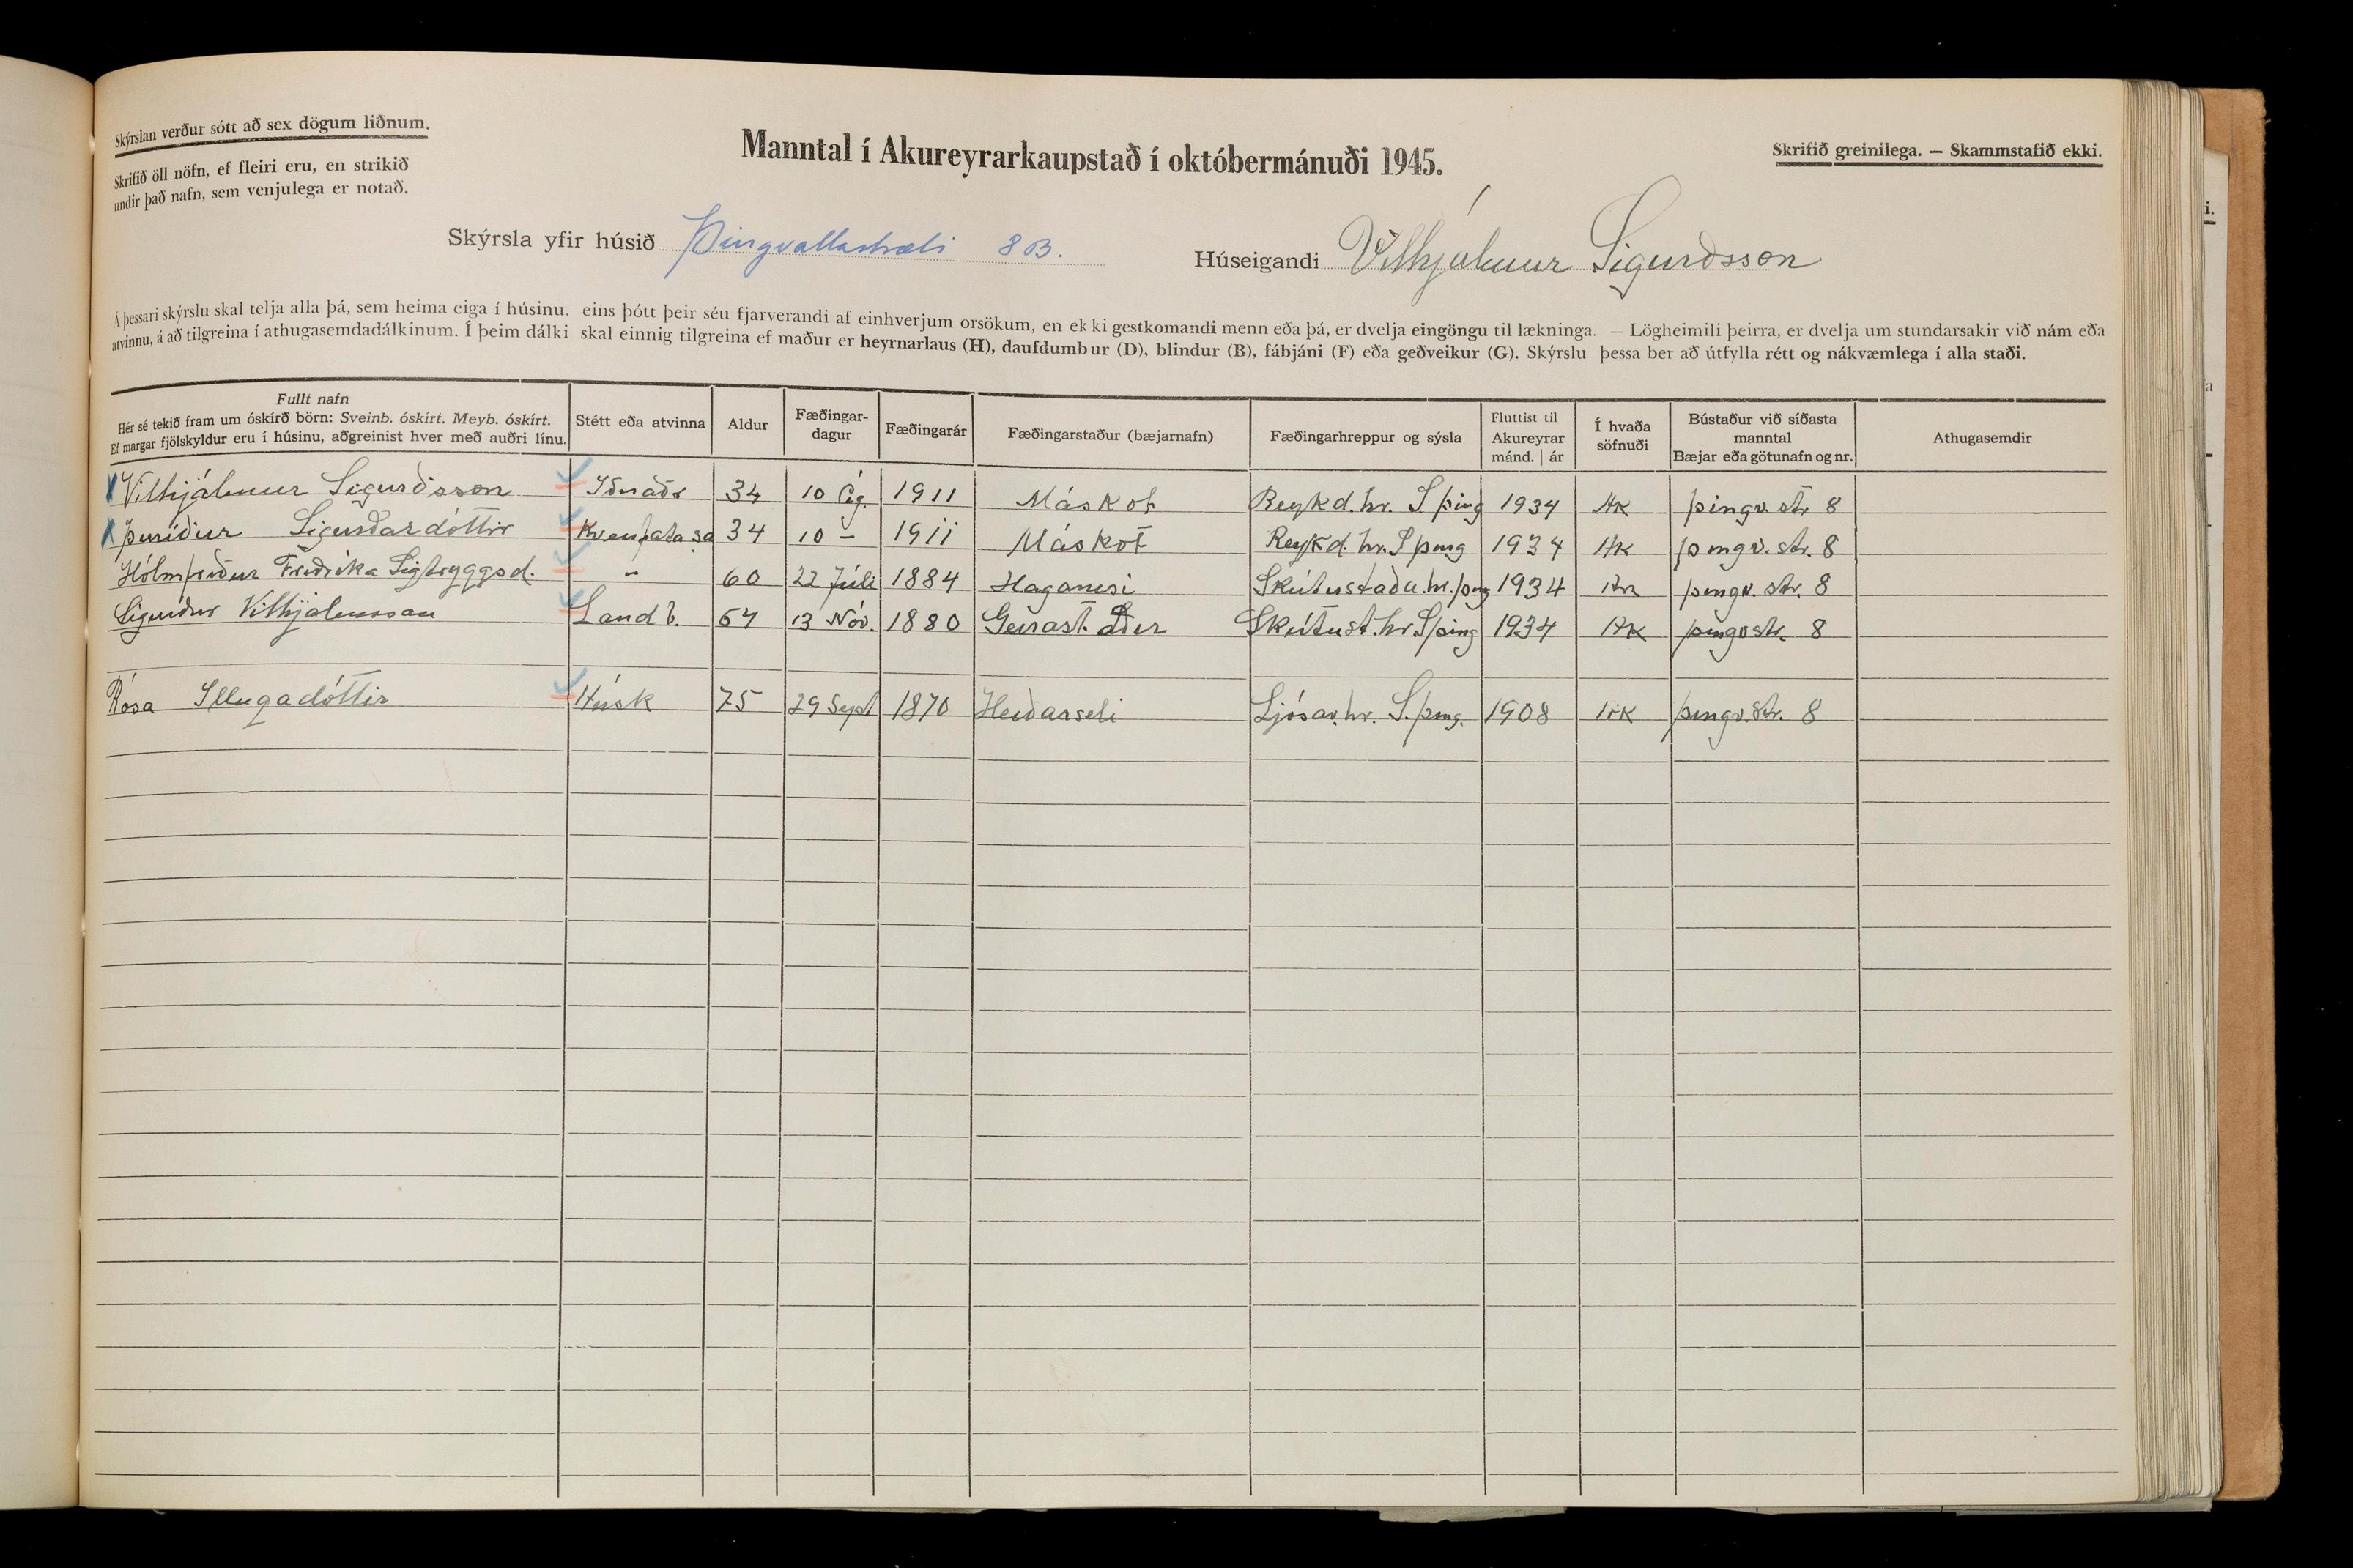 Skýrslan verður sótt að sex dögum liðnum.
Skrifið öll nöfn, ef fleiri eru, en strikið
undir það nafn, sem venjulega er notað.
Manntal í Akureyrarkaupstað í októbermánuði 1945.
Skrifið greinilega. — Skammstafið ekki.
Skýrsla yfir húsið Þingvallastræti 8B. Húseigandi Vilhjálmur Sigurðsson
Á þessari skýrslu skal telja alla þá, sem heima eiga í húsinu, eins þótt þeir séu fjarverandi af einhverjum orsökum, en ekki gestkomandi menn eða þá, er dvelja eingöngu til lækninga. — Lögheimili þeirra, er dvelja um stundarsakir við nám eða
atvinnu, á að tilgreina í athugasemdadálkinum. Í þeim dálki skal einnig tilgreina ef maður er heyrnarlaus (H), daufdumbur (D), blindur (B), fábjáni (F) eða geðveikur (G). Skýrslu þessa ber að útfylla rétt og nákvæmlega í alla staði.
Fullt nafn
Hér sé tekið fram um óskírð börn: Sveinb. óskírt. Meyb. óskírt.
Ef margar fjölskyldur eru í húsinu, aðgreinist hver með auðri línu.
Stétt eða atvinna
Aldur
Fæðingar-
dagur
Fæðingarár
Fæðingarstaður (bæjarnafn)
Fæðingarhreppur og sýsla
Fluttist til
Akureyrar
mánd. | ár
Í hvaða
söfnuði
Bústaður við síðasta
manntal
Bæjar eða götunafn og nr.
Athugasemdir
Vilhjálmur Sigurðsson Iðnaðr 34 10 Ág. 1911 Máskot Reykd. hr. S þing 1934 ÞK þingv. str 8
Þuríður Sigurðardóttir Kvenfata sa 34 10 – 1911 Máskot Reykd. hr. S þing 1934 ÞK þingv. str. 8
Hólmfríður Friðrika Sigtryggsd. – 60 22 Júlí 1884 Haganesi Skútustaða.hr. þing 1934 þingv. str. 8
Sigurður Vilhjálmsson Land b. 64 13 Nóv. 1880 Geirast. aðir Skútust. hr. S þing 1934 ÞK þingvstr. 8
Rósa Illugadóttir Húsk 75 29 Sept 1870 Heiðarseli Ljósav. hr. S. þing. 1908 ÞK þingv. str. 8